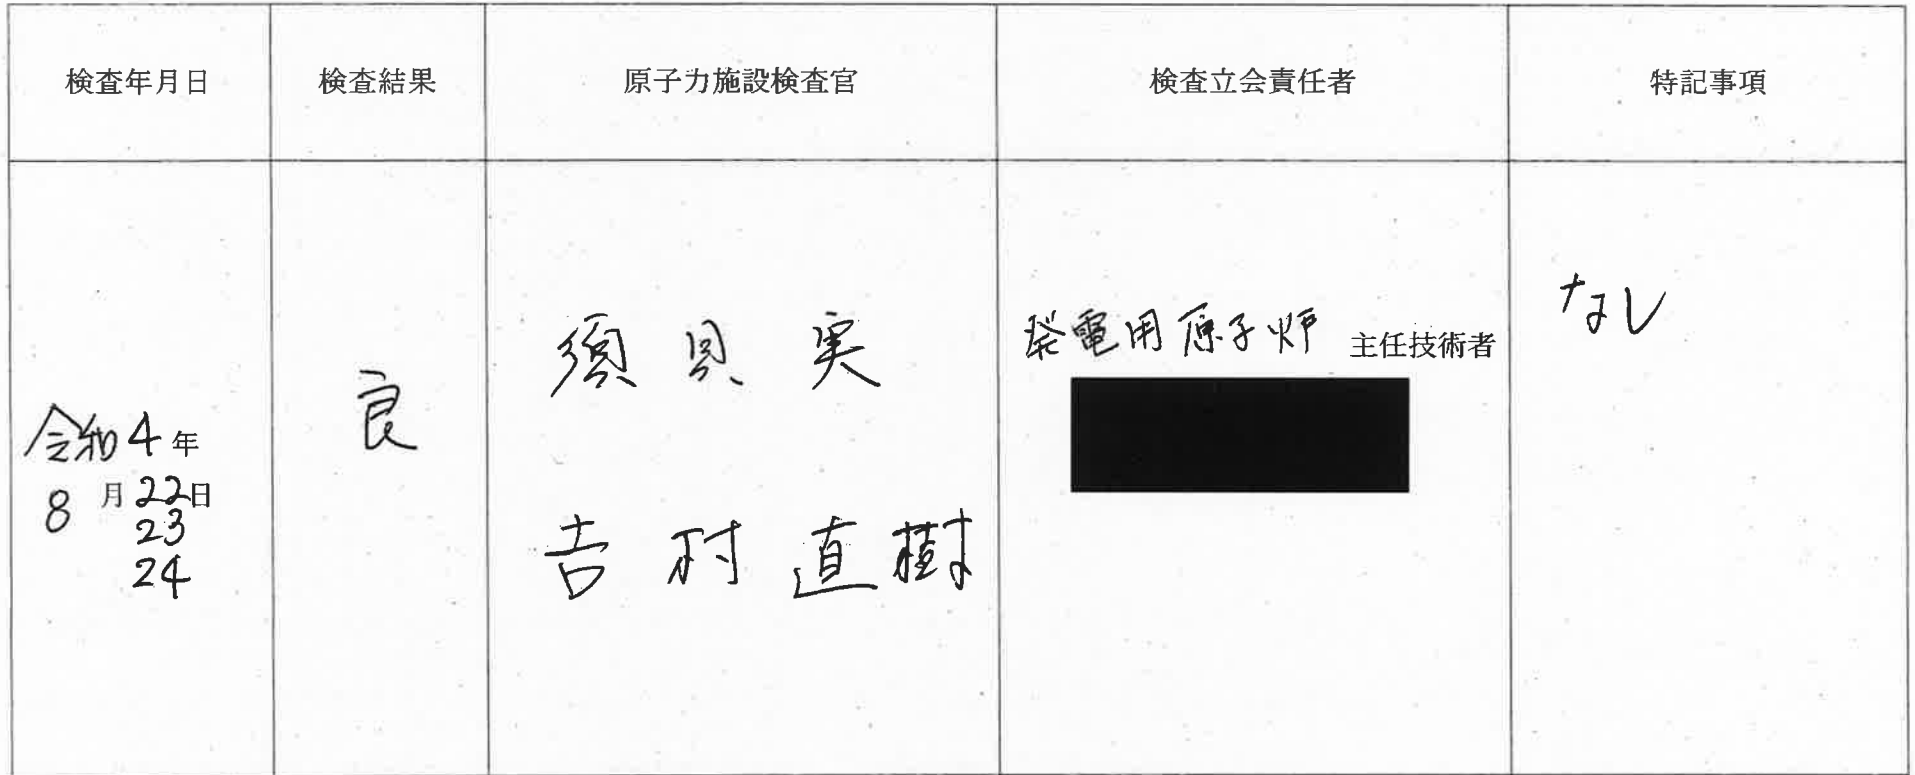 検査年月日
検査結果
原子力施設検査官
検査立会責任者
特記事項
令和4年
8月22日
23
24
良
須貝 実
吉村直樹
発電用原子炉 主任技術者
なし